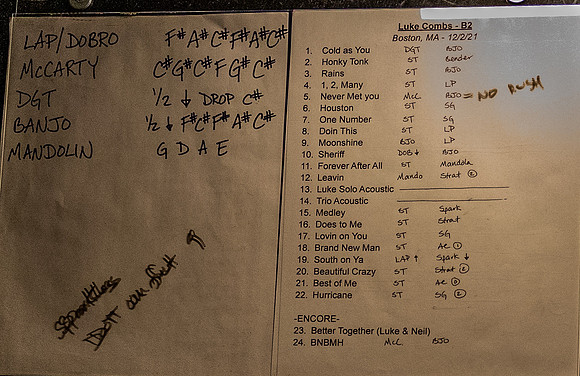 LAP/DOBRO F# A# C# F# A# C#
McCARTY C# G# C# F G# C#
DGT 1/2 ↓ DROP C#
BANJO 1/2 ↓ F# C# F# A# C#
MANDOLIN G D A E
DON'T
Luke Combs - B2
Boston, MA - 12/2/21
1. Cold as You DGT BJO
2. Honky Tonk ST Bender
3. Rains ST BJO
4. 1, 2, Many ST LP
5. Never Met you McC BJO = NO RUSH
6. Houston ST SG
7. One Number ST SG
8. Doin This ST LP
9. Moonshine BJO LP
10. Sheriff DOB ↓ BJO
11. Forever After All ST Mandola
12. Leavin Mando Strat ②
13. Luke Solo Acoustic
14. Trio Acoustic
15. Medley ST Spark
16. Does to Me ST Strat
17. Lovin on You ST SG
18. Brand New Man ST AC ①
19. South on Ya LAP ↑ Spark ↓
20. Beautiful Crazy ST Strat ②
21. Best of Me ST AC ①
22. Hurricane ST SG ②
-ENCORE-
23. Better Together (Luke & Neil)
24. BNBMH McC BJO